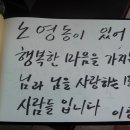 노영동이 있어
행복한 마음을 가지
님과 남을 사랑하는
사람들 입니다